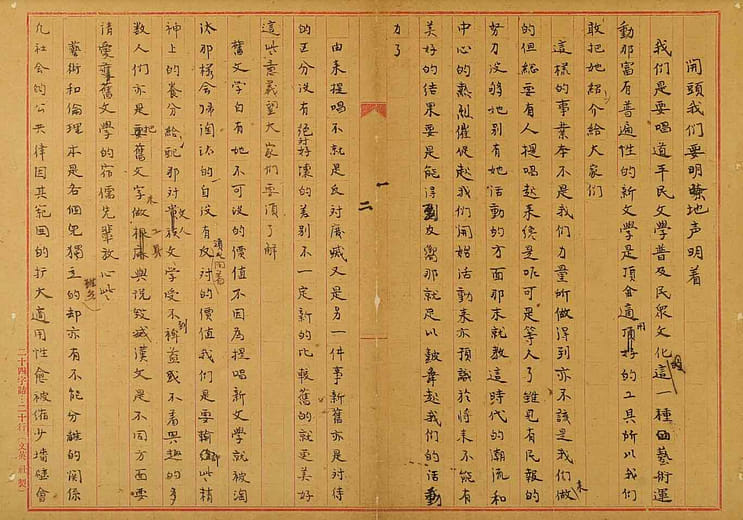 開頭我們要明瞭地声明着
我們是要唱道平民文學普及民眾文化這一種的藝術運
動那富有普遍性的新文學是頂合適用的工具所以我们
敢把她紹介給大家们
這樣的事業本不是我们力量所做得到亦不該是我们做來
的但總要有人提唱起来終是不可是等人了雖也有民報的
努力没够她別有她活動的方面那末就教這時代的潮流和
中心的熱烈催促起我们開始活動来亦預識於将来不能有
美好的結果要是能得到反響那就足以鼓舞起我们的活動
力了
一
二
由来提唱不就是反対廢滅又是另一件事新舊亦是対待
的区分没有絕対好壊的差別不一定新的比較舊的就更美好
這些意義望大家们要須了解
舊文学自有她不可没的價值不因為提唱新文學就被淘
汰那樣會歸淘汰的自没有反対的價值我们是要輸些精
神上的養分給那対文學受不到裨益或不看興趣的多
數人们亦是要把舊文字做來工具與說毀滅漢文是不同方面要
請愛舊文學的宿儒先輩放心些
藝術和倫理本是各個兒獨立的雖然却亦有不能分離的関係
凡社会的公共律因其範囲的扩大適用性愈被佔少墻壁會
二十四字詰:二十行(文英社製)